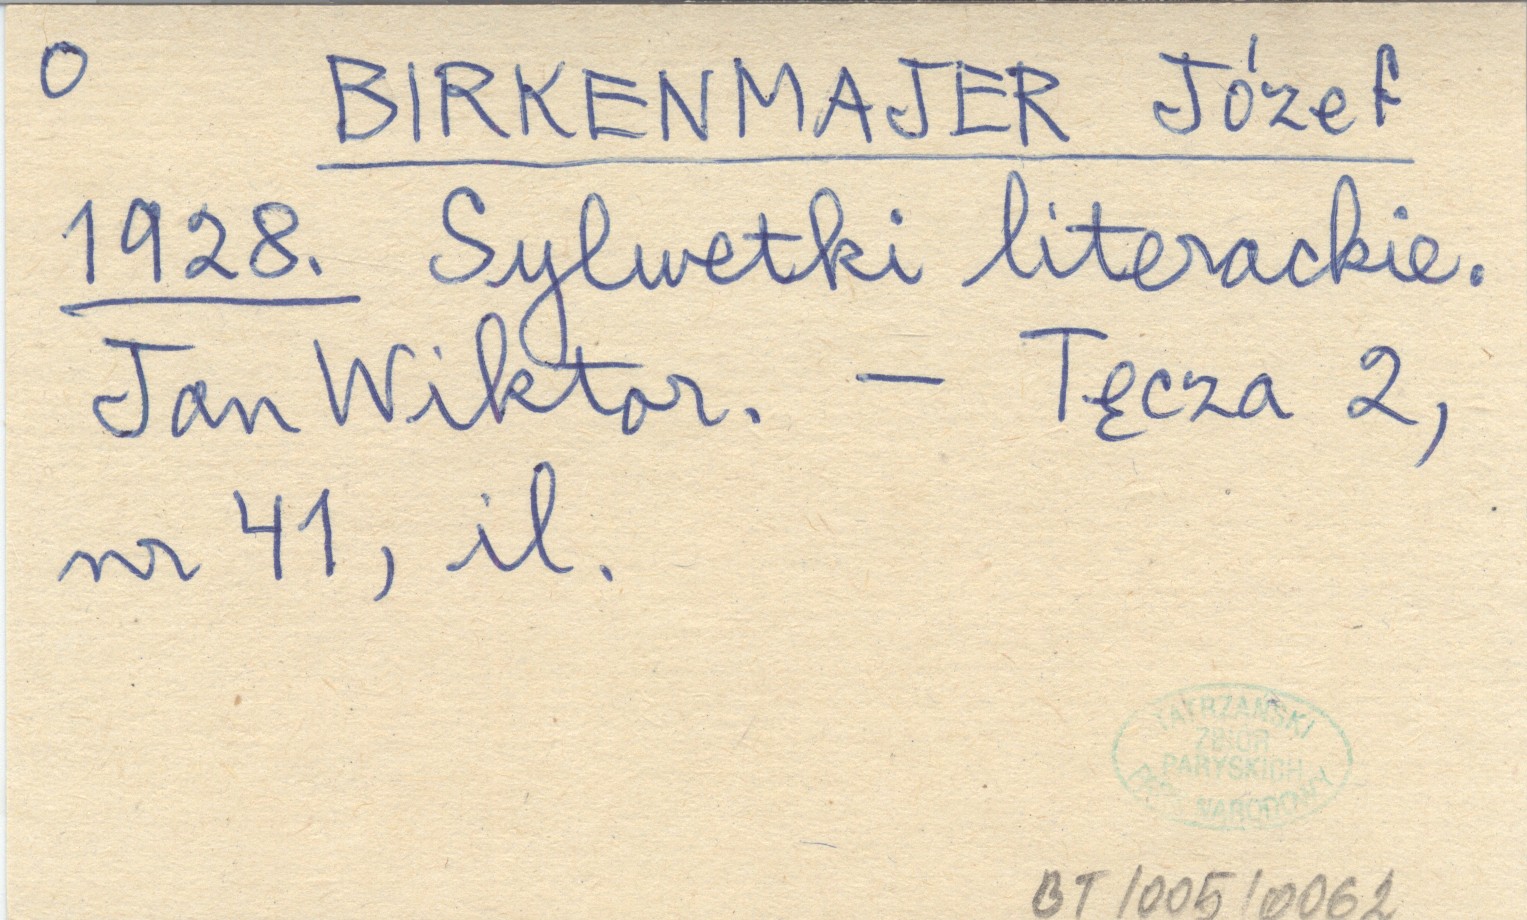 O
BIRKENMAJER Józef
1928. Sylwetki literackie.
Jan Wiktor. — Tęcza 2,
nr 41, il.
TATRZAŃSKI
ZBIÓR
PARYSKICH
NARODOWY
BT/005/0062